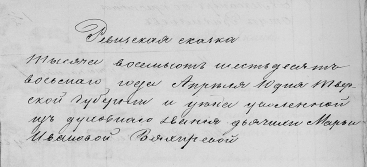 Ревизская сказка
Тысяча восемьсот шестьдесят
восьмаго года Апреля 10 дня Твер
ской губернии и уезда уволенной
изъ духовнаго звания дьячихи Марьи
Ивановой